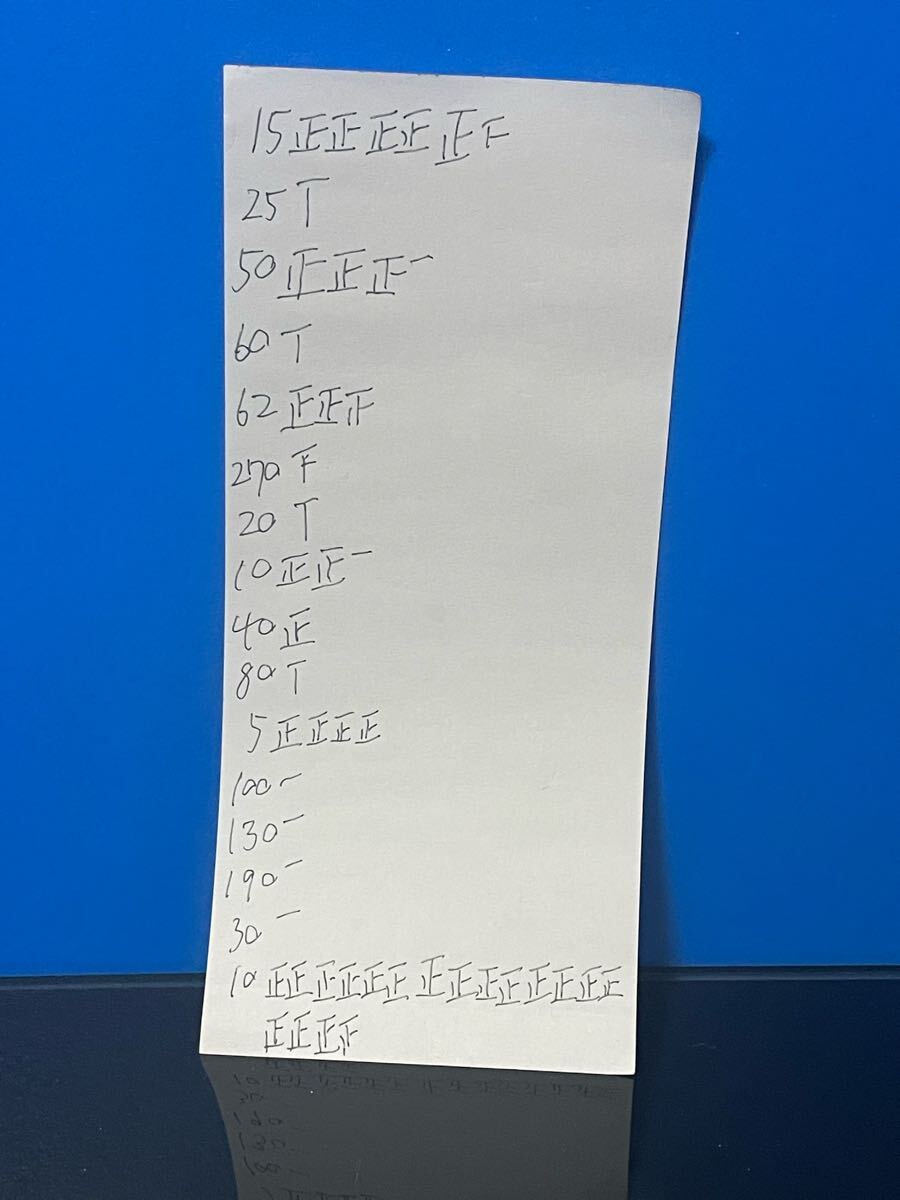 15正正正正正下
25丅
50正正正一
60丅
62正正正
270下
20丅
10正正一
40正
80丅
5正正正正
100一
130一
190一
30一
10正正正正正正正正正正正正正正
正正正正